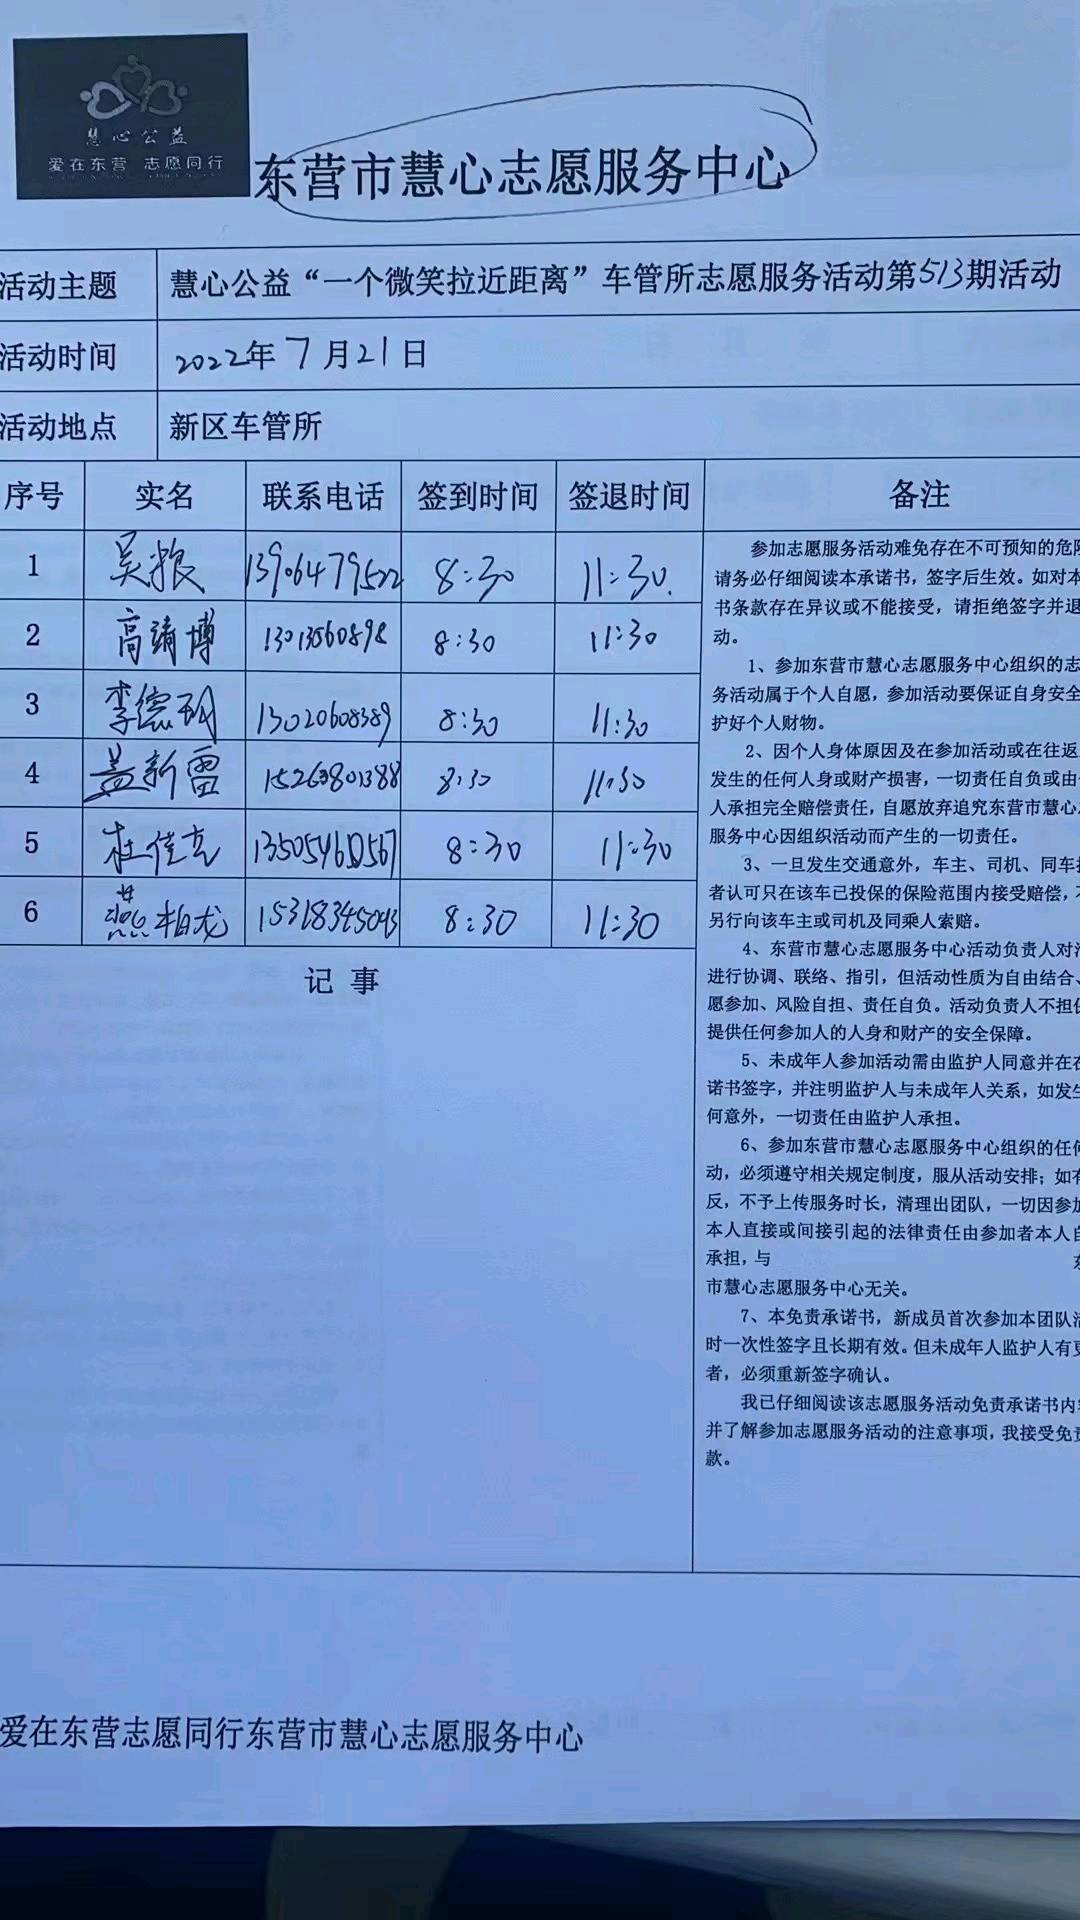 慧心公益
爱在东营 志愿同行
东营市慧心志愿服务中心
活动主题 慧心公益“一个微笑拉近距离”车管所志愿服务活动第513期活动
活动时间 2022年7月21日
活动地点 新区车管所
序号 实名 联系电话 签到时间 签退时间 备注
1 吴粮 13906479522 8:30 11:30.
2 高靖博 13013560898 8:30 11:30
3 李德明 13020608389 8:30 11:30
4 盖新雷 15263801388 8:30 11:30
5 杜佳克 13505460567 8:30 11:30
6 燕柏龙 15318345043 8:30 11:30
记 事
参加志愿服务活动难免存在不可预知的危险
请务必仔细阅读本承诺书，签字后生效。如对本
书条款存在异议或不能接受，请拒绝签字并退
动。
1、参加东营市慧心志愿服务中心组织的志
务活动属于个人自愿，参加活动要保证自身安全
护好个人财物。
2、因个人身体原因及在参加活动或在往返
发生的任何人身或财产损害，一切责任自负或由
人承担完全赔偿责任，自愿放弃追究东营市慧心
服务中心因组织活动而产生的一切责任。
3、一旦发生交通意外，车主、司机、同车
者认可只在该车已投保的保险范围内接受赔偿，不
另行向该车主或司机及同乘人索赔。
4、东营市慧心志愿服务中心活动负责人对活
进行协调、联络、指引，但活动性质为自由结合、
愿参加、风险自担、责任自负。活动负责人不担保
提供任何参加人的人身和财产的安全保障。
5、未成年人参加活动需由监护人同意并在
诺书签字，并注明监护人与未成年人关系，如发生
何意外，一切责任由监护人承担。
6、参加东营市慧心志愿服务中心组织的任何
动，必须遵守相关规定制度，服从活动安排；如有
反，不予上传服务时长，清理出团队，一切因参加
本人直接或间接引起的法律责任由参加者本人自
承担，与 东
市慧心志愿服务中心无关。
7、本免责承诺书，新成员首次参加本团队活
时一次性签字且长期有效。但未成年人监护人有更
者，必须重新签字确认。
我已仔细阅读该志愿服务活动免责承诺书内容
并了解参加志愿服务活动的注意事项，我接受免责
款。
爱在东营志愿同行东营市慧心志愿服务中心